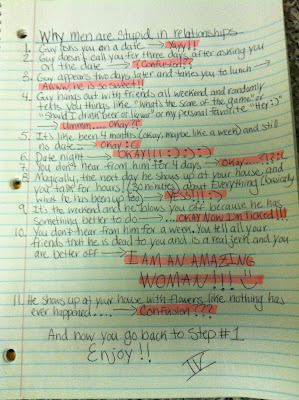 Why men are stupid in relationships
1. Guy asks you on a date → Yayy!!
2. Guy doesn't call you for three days after asking you
on the date → Confusion??
3. Guy appears two days later and takes you to lunch →
Awww he is so sweet!!
4. Guy hangs out with friends all weekend and randomly
texts you things like "What's the score of the game" or
"Should I drink beer or liquor" or my personal favorite "Hey :)"
→ Ummm..... Okay??
5. It's like been 4 months (okay maybe like a week) and still
no date... → Okay :(
6. Date night → OKAY!!! :) :) :) :)
7. You don't hear from him for 4 days → Okay....!??:(
8. Magically, the next day he shows up at your house, and
you talk for hours! (30 minutes) about everything (basically
what he has been up too) → YESS!!! :)
9. It's the weekend and he blows you off because he has
something better to do → OKay Now I'm ticked!!!
10. You don't hear from him for a week. You tell all your
friends that he is dead to you and is a real jerk and you
are better off → I AM AN AMAZING
WOMAN!!!
11. He shows up at your house with flowers like nothing has
ever happened.... → Confusion???
And now you go back to Step #1.
Enjoy!!
IV